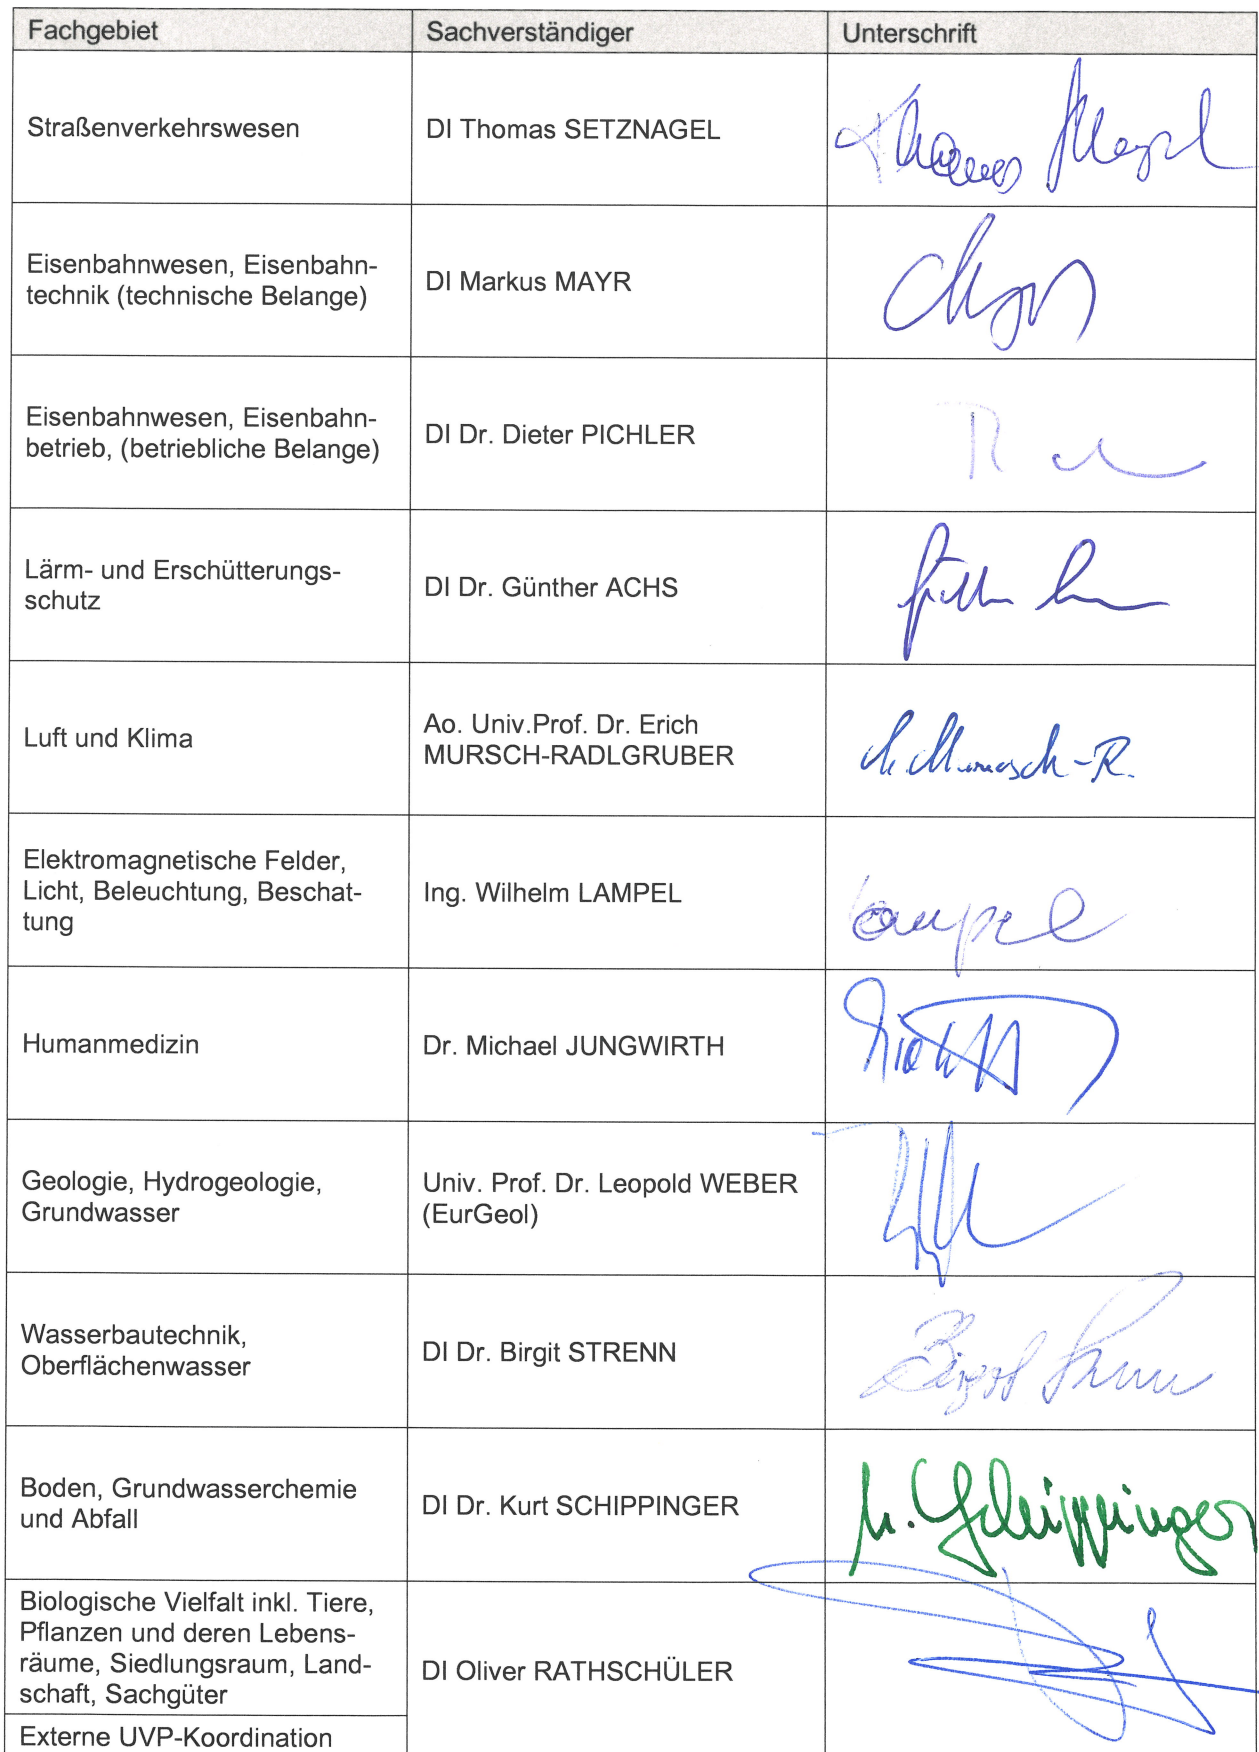 Fachgebiet Sachverständiger Unterschrift
Straßenverkehrswesen DI Thomas SETZNAGEL
Eisenbahnwesen, Eisenbahn-
technik (technische Belange)
DI Markus MAYR
Eisenbahnwesen, Eisenbahn-
betrieb, (betriebliche Belange)
DI Dr. Dieter PICHLER
Lärm- und Erschütterungs-
schutz
DI Dr. Günther ACHS
Luft und Klima
Ao. Univ.Prof. Dr. Erich
MURSCH-RADLGRUBER
Elektromagnetische Felder,
Licht, Beleuchtung, Beschat-
tung
Ing. Wilhelm LAMPEL
Lampel
Humanmedizin Dr. Michael JUNGWIRTH
Geologie, Hydrogeologie,
Grundwasser
Univ. Prof. Dr. Leopold WEBER
(EurGeol)
Wasserbautechnik,
Oberflächenwasser
DI Dr. Birgit STRENN
Birgit Strenn
Boden, Grundwasserchemie
und Abfall
DI Dr. Kurt SCHIPPINGER
K. Schippinger
Biologische Vielfalt inkl. Tiere,
Pflanzen und deren Lebens-
räume, Siedlungsraum, Land-
schaft, Sachgüter
Externe UVP-Koordination
DI Oliver RATHSCHÜLER